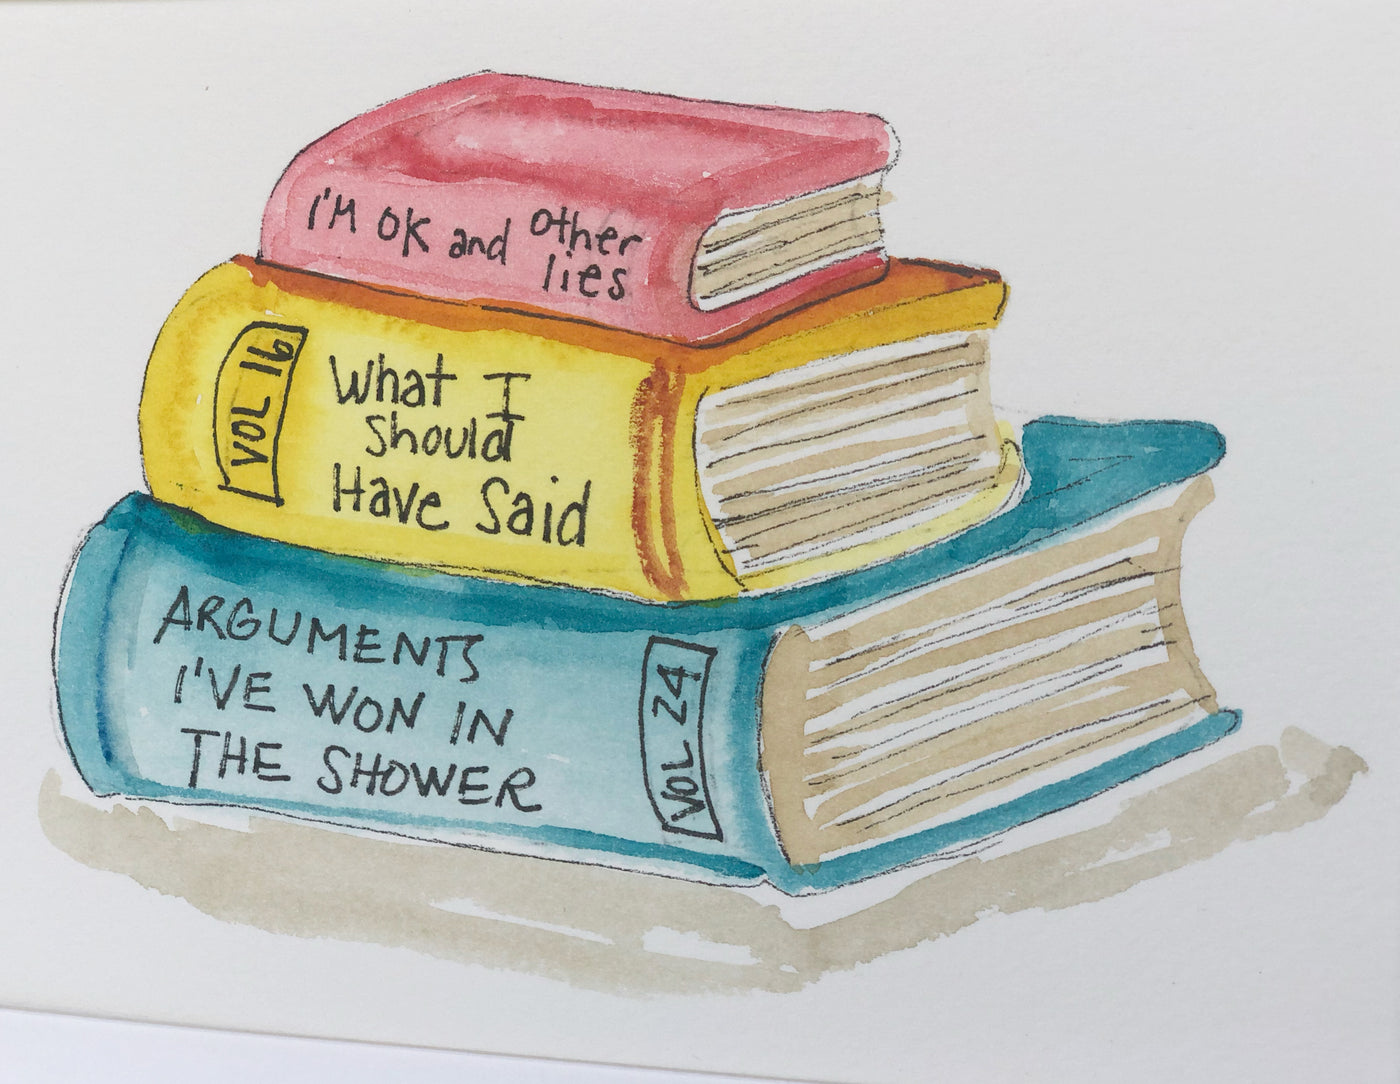 I'M OK and other
lies
VOL 16
What I
Should
Have Said
ARGUMENTS
I'VE WON IN
THE SHOWER
VOL 24